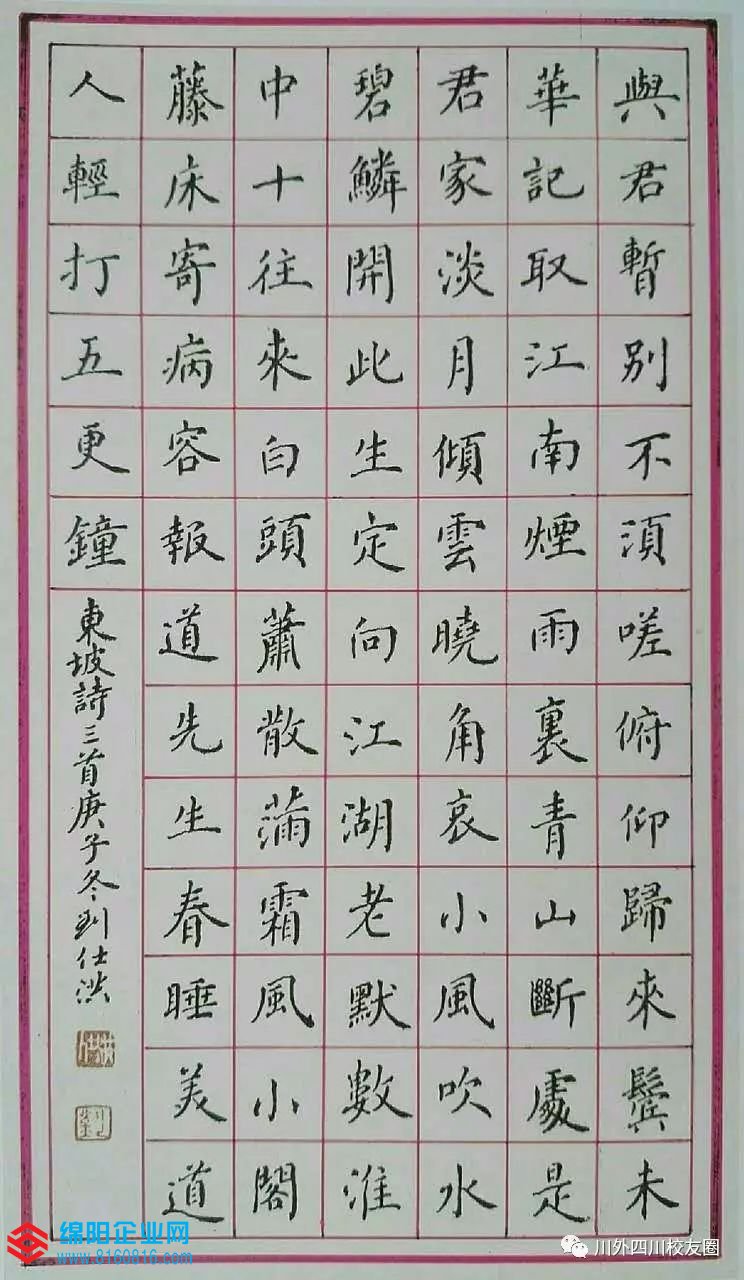 與君暫別不須嗟俯仰歸來鬢未
華記取江南煙雨裏青山斷處是
君家淡月傾雲曉角哀小風吹水
碧鱗開此生定向江湖老默數淮
中十往來白頭蕭散滿霜風小閣
藤床寄病容報道先生春睡美道
人輕打五更鐘
東坡詩三首庚子冬劉仕洪
绵阳企业网
www.8160816.com
川外四川校友圈